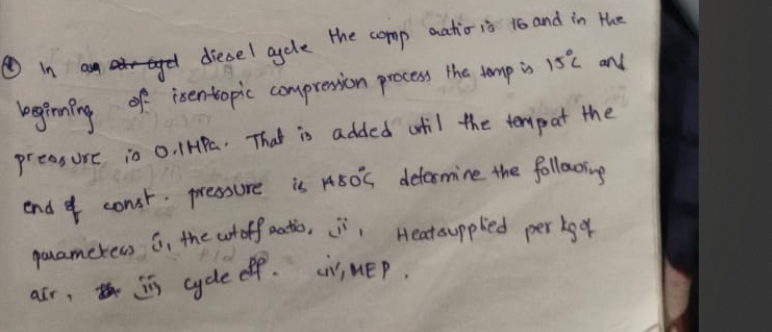 ④ In an air cycl diesel cycle the comp ratio is 16 and in the
beginning of isentopic compression process the temp is 15°c and
pressure is 0.1MPa. That is added until the temp at the
end of const. pressure is 1480°C determine the following
parameters i, the cutoff ratio, ii, Heatsupplied per kg of
air, iii, cycle eff. iv, MEP.